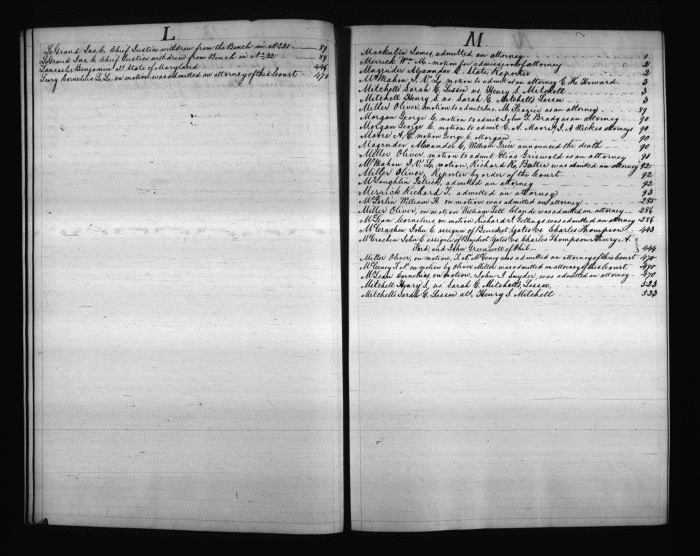 L
Le Grand Jno. C. Chief Justice withdrew from the Bench in No. 31 89
Le Grand Jno. C. Chief Justice withdrew from Bench in No. 32 89
Lancaster Benjamin als State of Maryland 446
Leary Cornelius L. L. on motion was admitted an attorney of this Court 470
M
Mackubin James, admitted an attorney 1
Merrick Wm. M. motion for admission of attorney 2
Magruder Alexander C. State Reporter 2
McMahon J. V. L. motion to admit as an attorney C. H. Howard 3
Mitchells Sarah E. Lessee vs. Henry S. Mitchell 3
Mitchell Henry S. vs Sarah E. Mitchells Lessee 3
Miller Oliver, motion to admit as an attorney 89
Morgan George C. motion to admit John G. Brady as an attorney 90
Morgan George C. motion to admit C. A. Moore, J. A. Wickes attorneys 90
Moore A. C. motion George C. Morgan 90
Magruder Alexander C., William Price announced the death 90
Miller Oliver, motion to admit Elias Griswold as an attorney 91
McMahon J. V. L. motion, Richard R. Battee was admitted an attorney 92
Miller Oliver, Reporter by order of the Court 92
McLaughlin Patrick, admitted an attorney 92
Merrick Richard T. admitted an attorney 93
William H. on motion was admitted an attorney 255
Miller Oliver, on motion William Tell Claude was admitted attorney 256
McLean Cornelius, on motion Richard J. Gittings was admitted an attorney 256
McCracken John C. assignee of Benedict Yates vs Charles Thompson 443
McCracken John C. assignee of Benedict Yates vs Charles Thompson, Henry A.
Ford, and John Greenwell of Phil 444
Miller Oliver, on motion, J. N. McCeney was admitted an attorney of this Court 470
McCeney J. N. on motion by Oliver Miller was admitted an attorney of this Court 470
McLean Cornelius, on motion, John J. Snyder, was admitted an attorney 470
Mitchell Henry S. vs Sarah E. Mitchells, Lessee 523
Mitchells Sarah E. Lessee als. Henry S. Mitchell 523